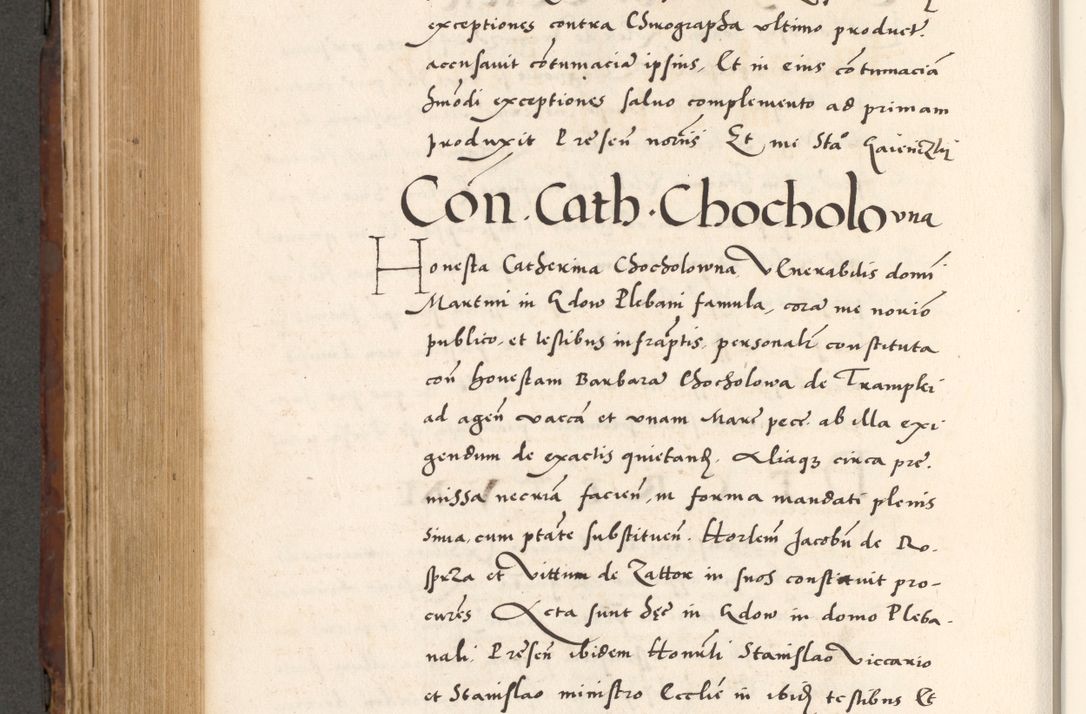 exceptiones contra Chirographa ultimo product.
accusavit cõtumaciã ipsius. Et in eius cõtumaciã
hmõdi exceptiones salvo complemento ad primam
produxit Presen̄ notrijs Et me Sta° Gaienczkij
Cōn. Cath. Chocholovna
Honesta Catherina Chocholowna Venerabilis domī
Martini in Gdow Plebani famula, corā me noriō
publico, et testibus infraptis, personalr̄ constituta
con̄ honestam Barbarā Chocholowa de Tramplei
ad agen̄ vaccā et unam Marc̄ pecē ab illa exi
gendum de exactis quietand̨. Aliaq̨ circa pre.
missa necriā facien̄, in forma mandati plenis
sima, cum ptāte substituen̄. Horlem̄ Jacobū de Ro.
sprza et Vittum de Zattor in suos constituit pro-
curēs Acta sunt hęc in Gdow in domo Pleba.
nali. Presen̄ ibidem Honrli Stanislao Viccario
et Stanislao ministro Ecclie in ibid̨ testibus Et